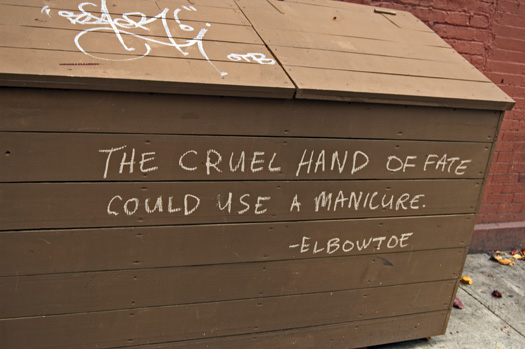 THE CRUEL HAND OF FATE
COULD USE A MANICURE.
-ELBOWTOE